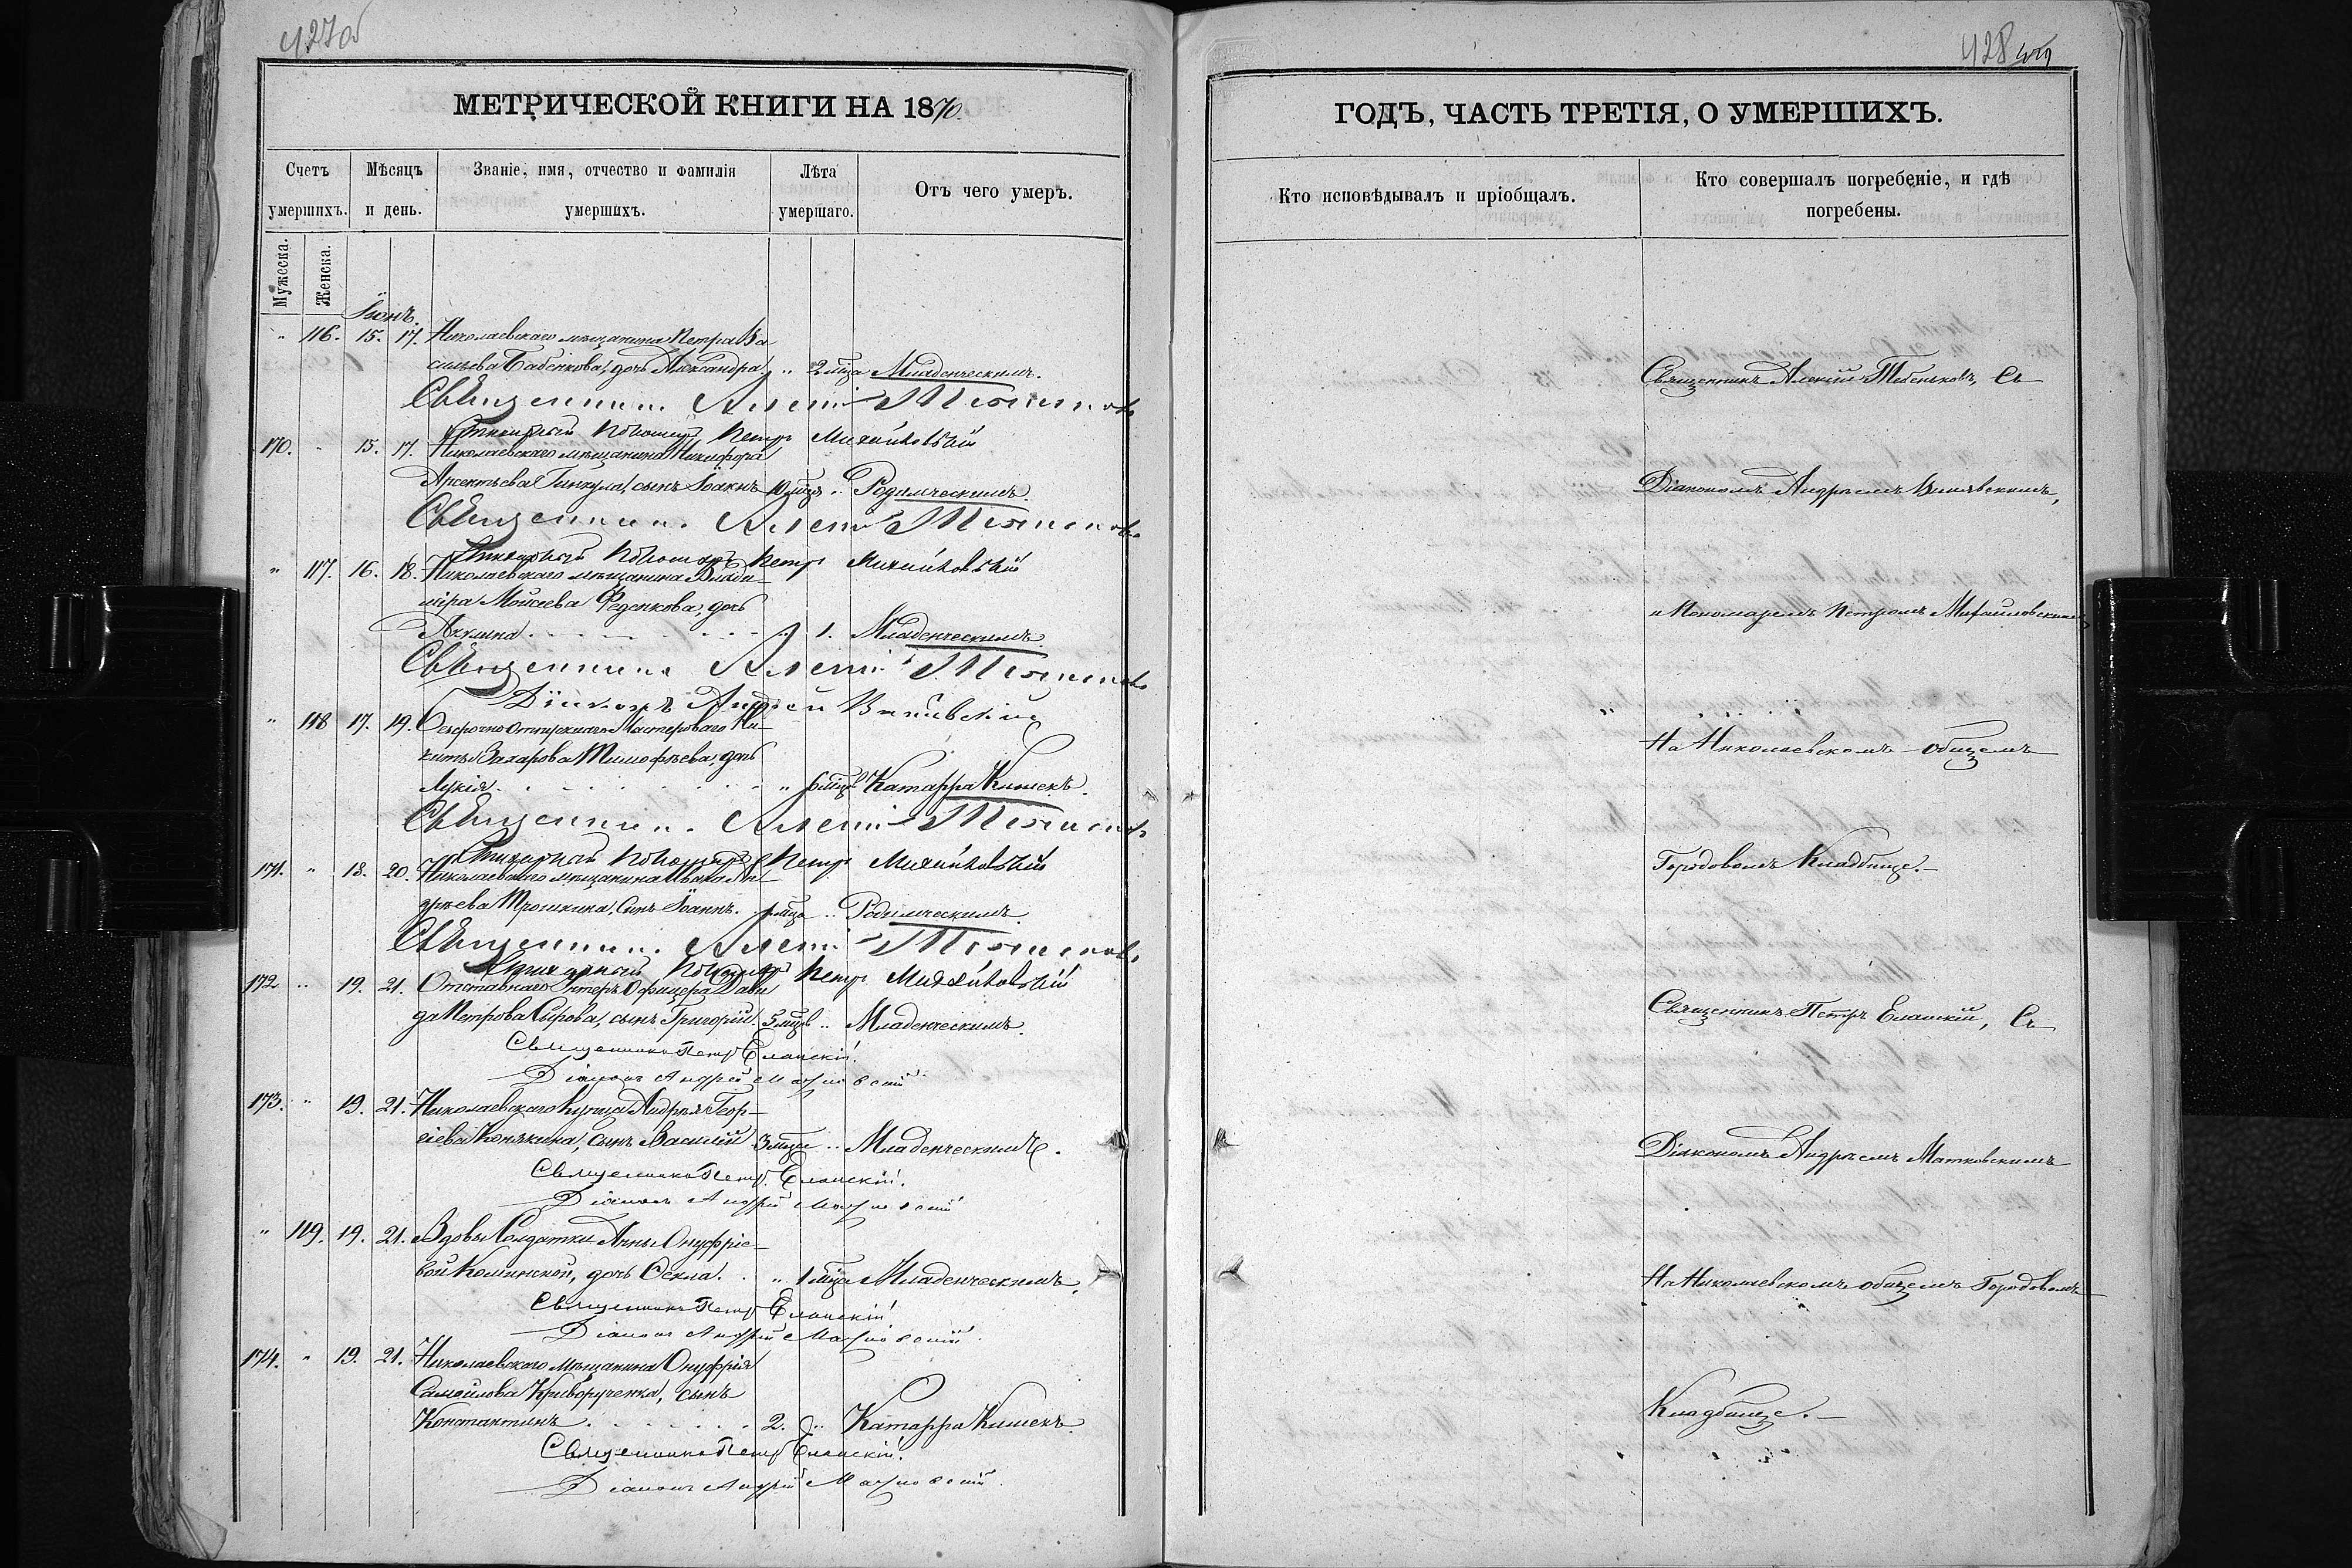 427об
МЕТРИЧЕСКОЙ КНИГИ НА 1870.
Счетъ умершихъ.
Мѣсяцъ и день.
Званіе, имя, отчество и фамилія умершихъ.
Лѣта умершаго.
Отъ чего умеръ.
Мужеска.
Женска.
Іюнь.
" 116. 15. 17. Николаевскаго мѣщанина Петра Ва
сильева Бабенкова, дочь Александра " 2 мца Младенческимъ.
Священникъ Алексій Тебеньковъ
Стихарный Пономарь Петръ Михайловскій
170. " 15. 17. Николаевскаго мѣщанина Никифора
Арсентьева Гинкула, сынъ Іоаннъ 10 мцв " Родимческимъ.
Священникъ Алексій Тебеньковъ
Стихарный Пономарь Петръ Михайловскій
" 117. 16. 18. Николаевскаго мѣщанина Влади-
міра Моисеева Феденкова, дочь
Акилина . . . 1. Младенческимъ.
Священникъ Алексій Тебеньковъ
Діаконъ Андрей
" 118 17. 19. Безсрочно Отпускнаго Мастероваго Ни-
киты Захарова Тимофѣева, дочь
Лукія. " 6 мцв Катарра Кишекъ.
Священникъ Алексій Тебеньковъ
Стихарный Пономарь Петръ Михайловскій
171. " 18. 20. Николаевскаго мѣщанина Ивана Ан-
дреева Трошкина, Сынъ Іоаннъ. 1 мца " Родимческимъ.
Священникъ Алексій Тебеньковъ
Стихарный Пономарь Петръ Михайловскій
172 " 19. 21. Отставнаго Унтеръ Офицера Дави
да Петрова Сырова, сынъ Григорій. 5 мцв " Младенческимъ.
Священникъ Петръ Еланскій.
Діаконъ Андрей Матковскій
173. " 19. 21. Николаевскаго Купца Андрея Геор-
гіева Конякина, сынъ Василій 3 мца " Младенческимъ.
Священникъ Петръ Еланскій.
Діаконъ Андрей Матковскій
" 119. 19. 21. Вдовы Солдатки Анны Онуфріе-
вой Коминской, дочь Ѳекла. " 1 мца Младенческимъ.
Священникъ Петръ Еланскій.
Діаконъ Андрей Матковскій
174. " 19. 21. Николаевскаго Мѣщанина Онуфрія
Самойлова Криворученка, сынъ
Константинъ . . . 2. " Катарра Кишекъ.
Священникъ Петръ Еланскій.
Діаконъ Андрей Матковскій.
428
ГОДЪ, ЧАСТЬ ТРЕТІЯ, О УМЕРШИХЪ.
Кто исповѣдывалъ и пріобщалъ.
Кто совершалъ погребеніе, и гдѣ погребены.
Священникъ Алексій Тебеньковъ, съ
Діакономъ Андреемъ
и Пономаремъ Петромъ Михайловскимъ
На Николаевскомъ общемъ
Городовомъ Кладбище.—
Священникъ Петръ Еланскій, съ
Діакономъ Андреемъ Матковскимъ
На Николаевскомъ общемъ Городовомъ
Кладбище.—